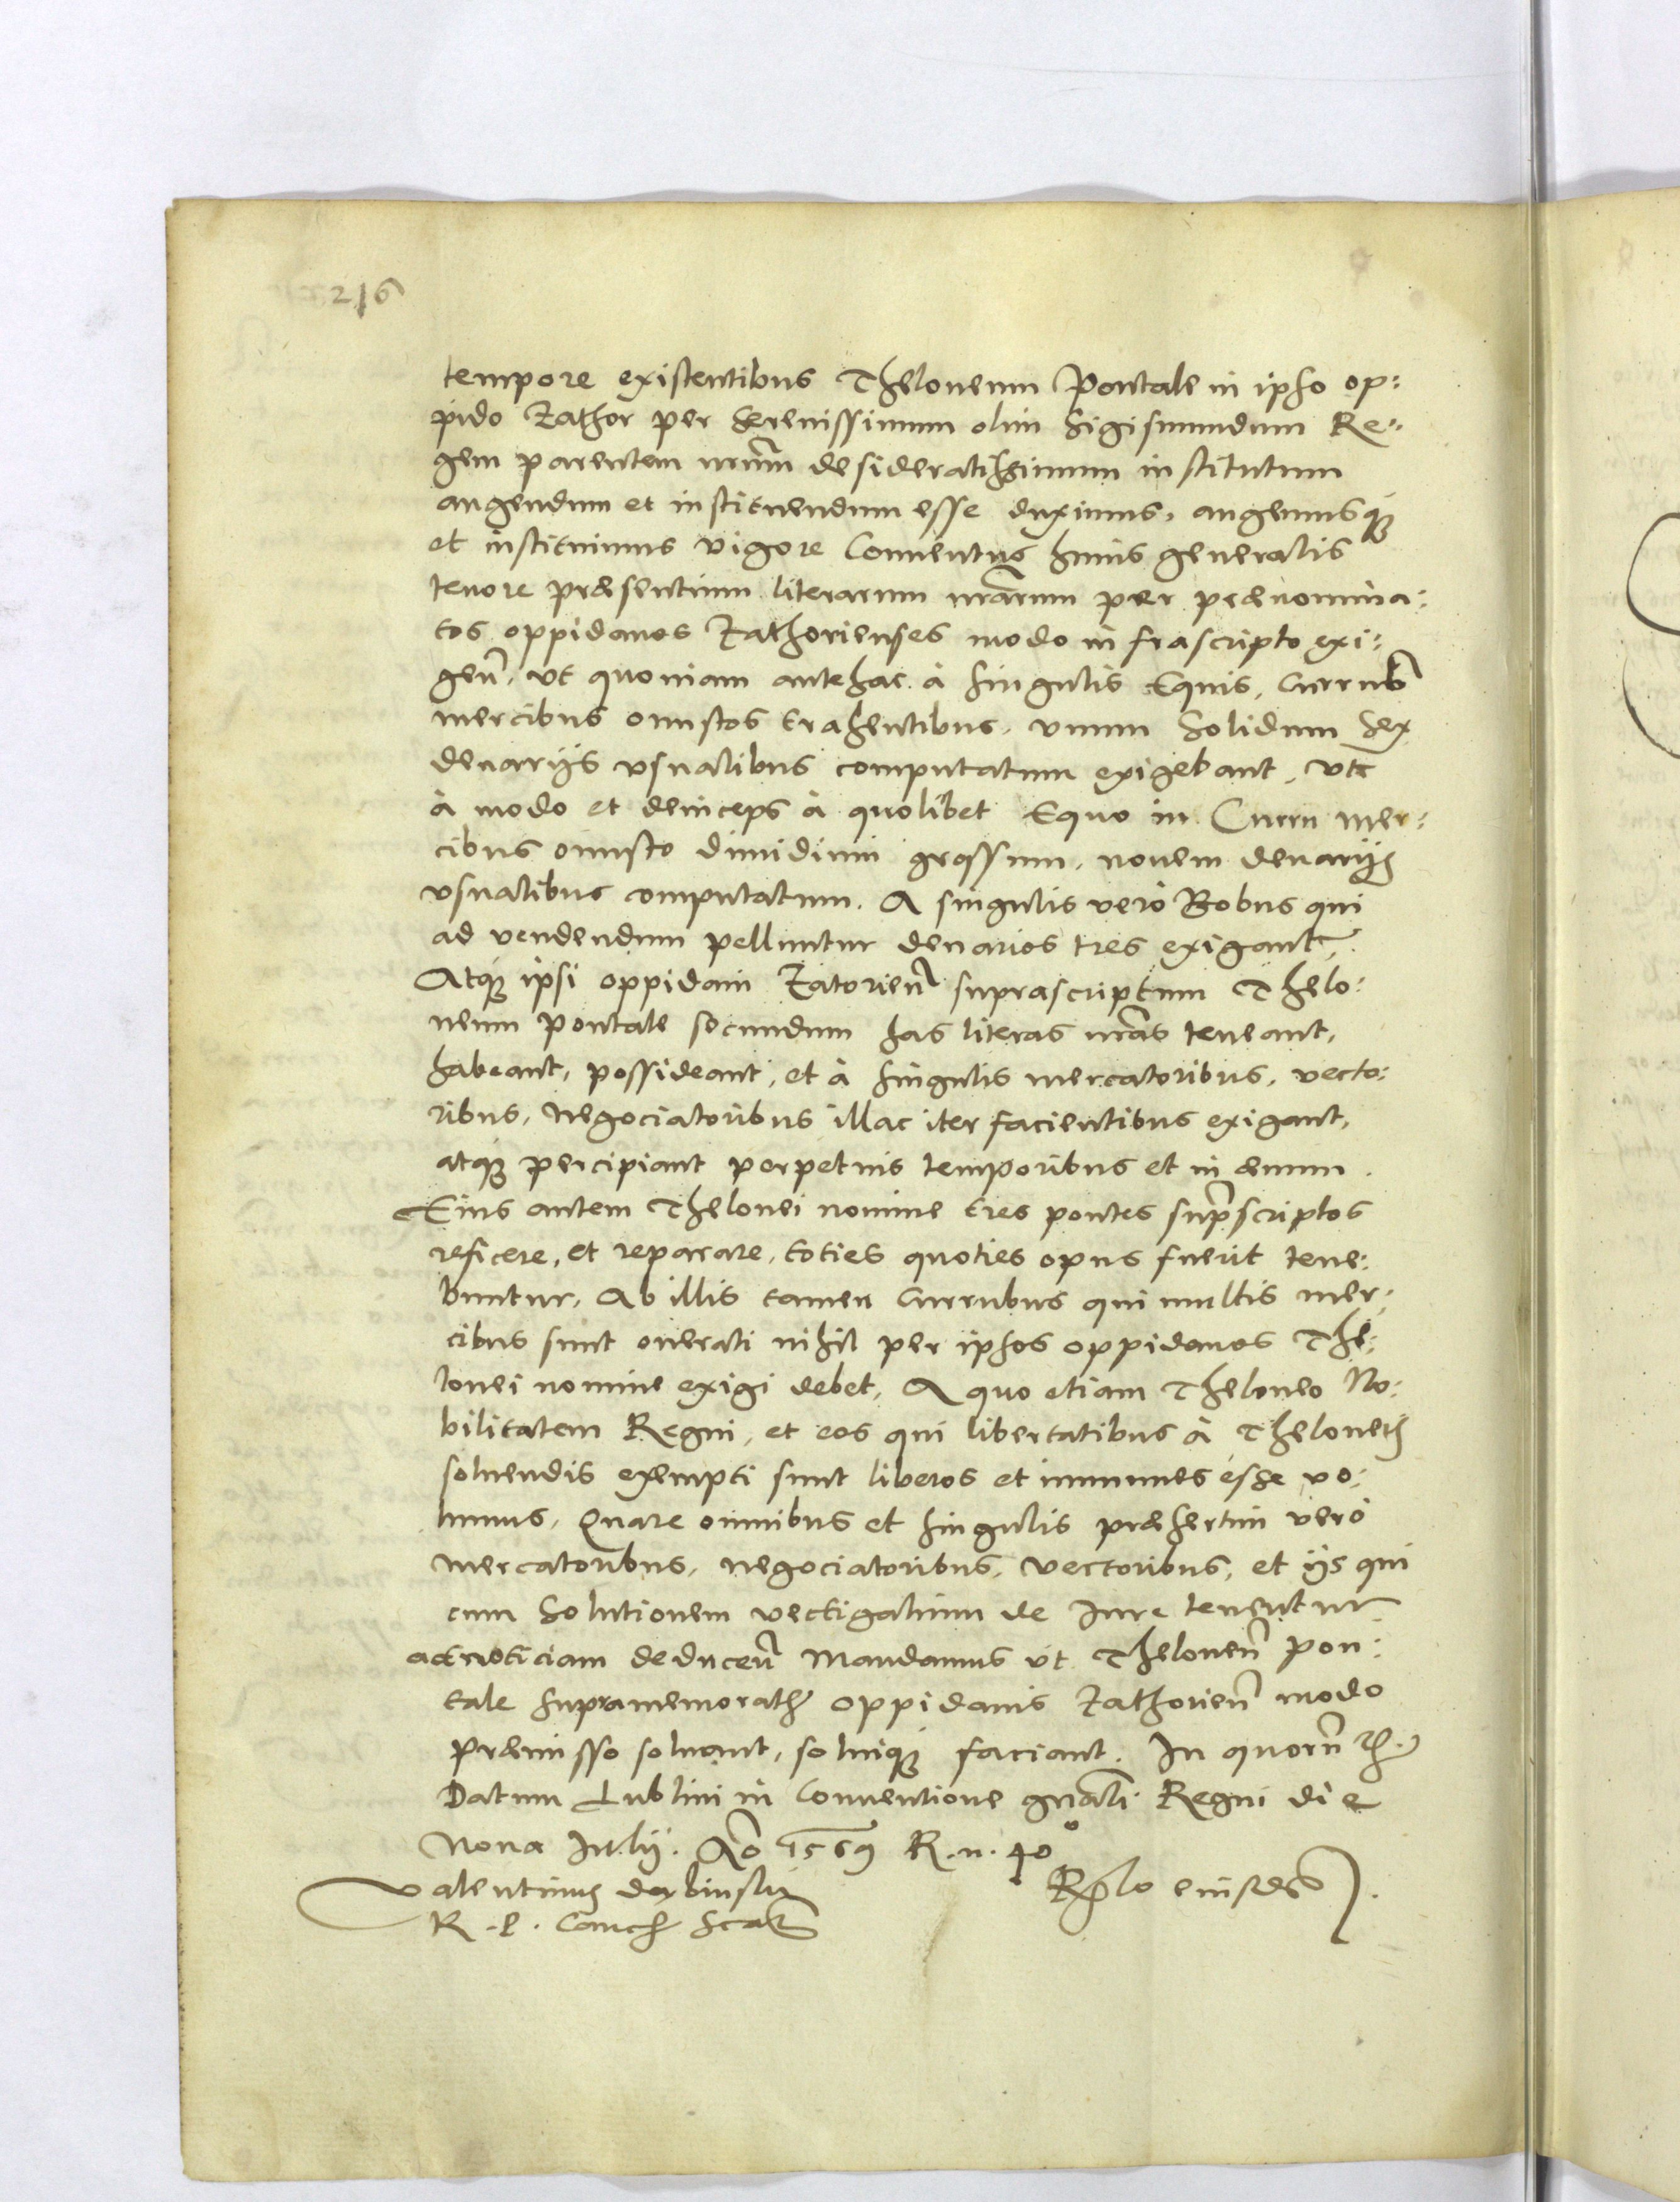 216
tempore existentibus Theloneum Pontale in ipso op:
pido Zathor per Serenissimum olim Sigismundum Re:
gem parentem nrum desideratissimum institutum
augendum et instituendum esse duximus, augemusq
et instituimus vigore Conventus huius generalis
tenore præsentium literarum nrarum per prænomina:
tos oppidanos Zathorienses modo infrascripto exi:
gen. ut quoniam antehac à singulis Equis, Currub
mercibus onustos trahentibus, unum Solidum Sex
denarijs vsualibus computatum exigebant, vt
à modo et deinceps à quolibet Equo in Curru mer:
cibus onusto dimidium grossum, novem denarijs
vsualibus computatum. A singulis verò Bobus qui
ad vendendum pelluntur denarios tres exigant.
Atq ipsi oppidani Zatorien suprascriptum Thelo:
neum pontale secundum has literas nras teneant,
habeant, possideant, et à singulis mercatoribus, vecto:
ribus, Negociatoribus illac iter facientibus exigant,
atq percipiant perpetuis temporibus et in ævum.
Eius autem Thelonei nomine tres pontes suprscriptos
reficere, et reparare, toties quoties opus fuerit tene:
buntur, Ab illis tamen Curribus qui nullis mer:
cibus sunt onerati nihil per ipsos oppidanos The:
lonei nomine exigi debet, A quo etiam Theloneo No:
bilitatem Regni, et eos qui libertatibus à Theloneis
solvendis exempti sunt liberos et immunes esse vo:
lumus, Quare omnibus et singulis præsertim verò
mercatoribus, negociatoribus, vectoribus, et ijs qui
cum Solutionem vectigalium de Iure tenentur
ad noticiam deducen Mandamus ut Theloneu pon:
tale supramemoratis oppidanis Zathorien modo
præmisso solvant, solviq faciant. In quoru rei
Datum Lublini in Conventione gnali Regni die
Nona Iulij. Ao 1569 R. n. 40°
Valentinus dembinski Rlo eiusdem
R. P. Canc sst